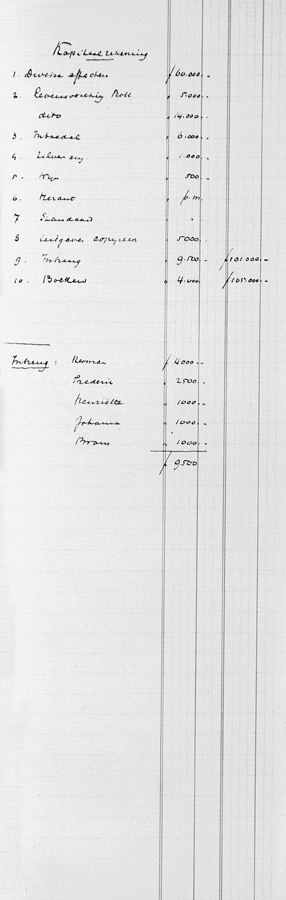 Kapitaalrekening
1. Diverse effecten f 60.000.-
2. Levensverz. Rott. " 5.000.-
dito " 14.000.-
3. Inboedel " 6.000.-
4. Zilver " 1.000.-
5. Wijn " 500.-
6. p.m.
7 Standaard "
8 Uitgaven copyreen 5000.-
9. Inbreng " 9.500.- f 101.000.-
10. Boeken " 4.000.- f 105.000.-
Inbreng: Herman f 4000.-
Frederik " 2500.-
Henriëtte " 1000.-
Johanna " 1000.-
Bram " 1000.-
f 9500